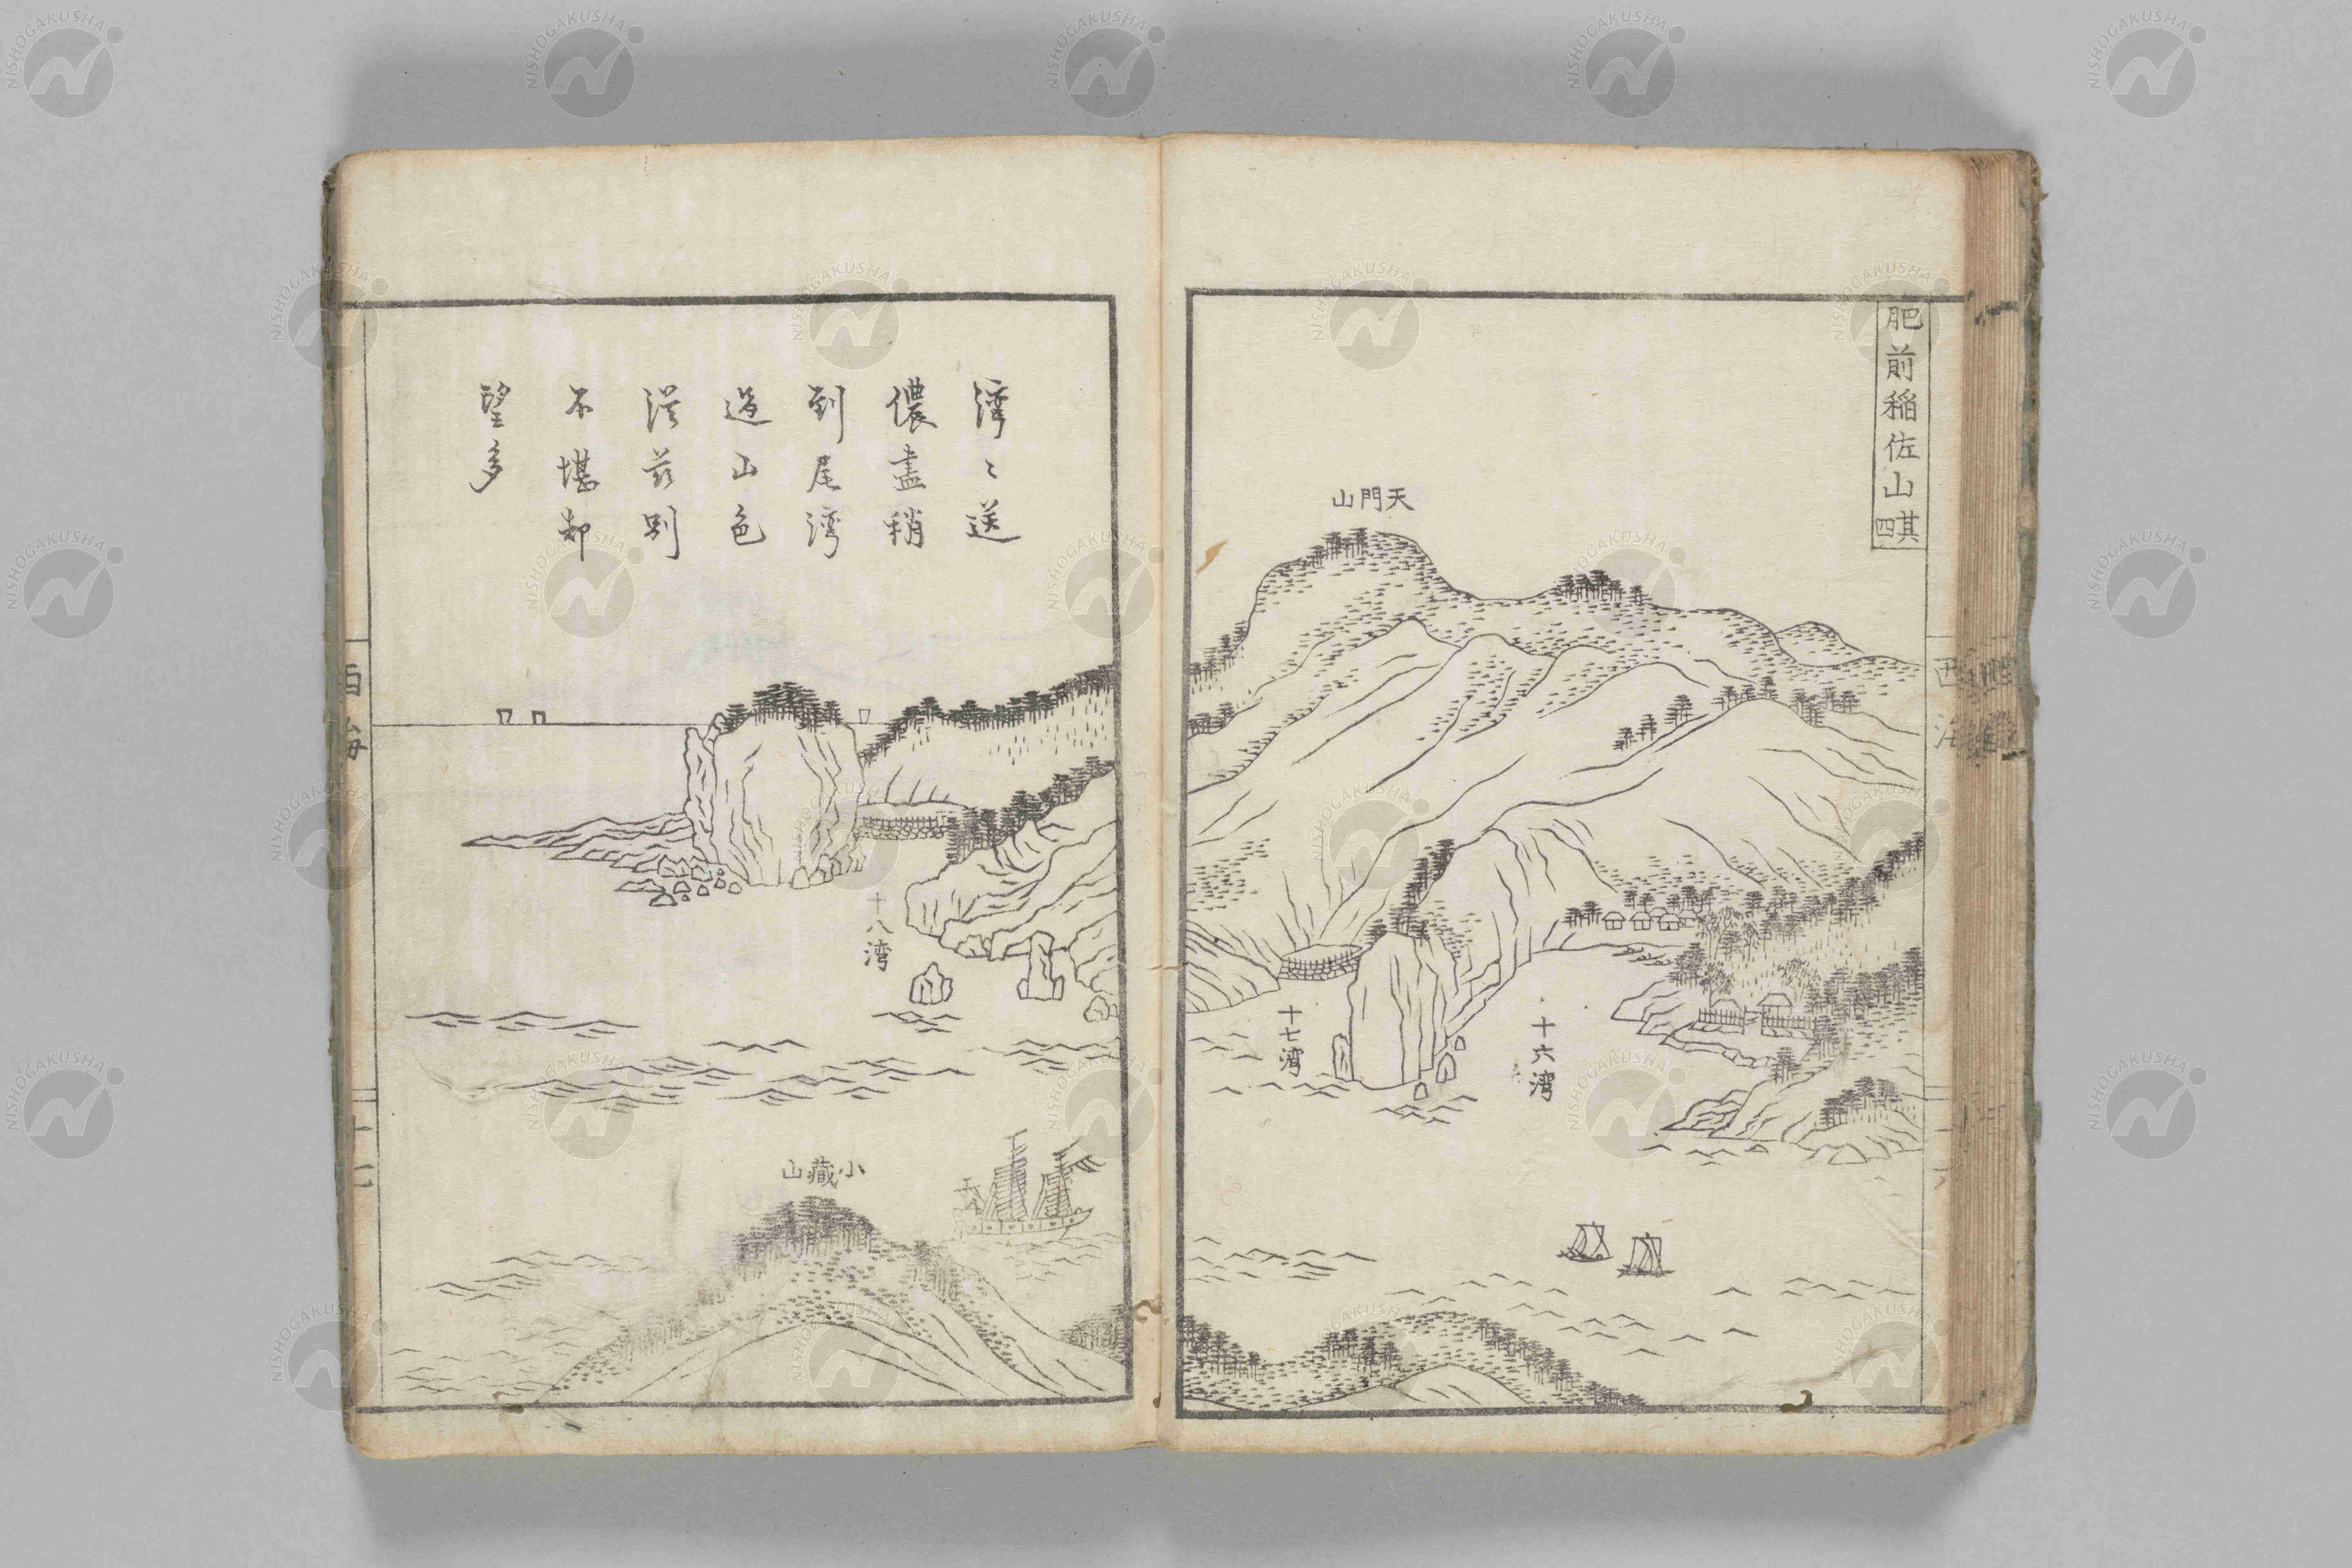 肥前稲佐山其四
天門山
十六湾
十七湾
湾〻送
儂盡稍
到尾湾
過山色
従茲別
不堪却
望多
十八湾
小藏山
西海
NISHOGAKUSHA